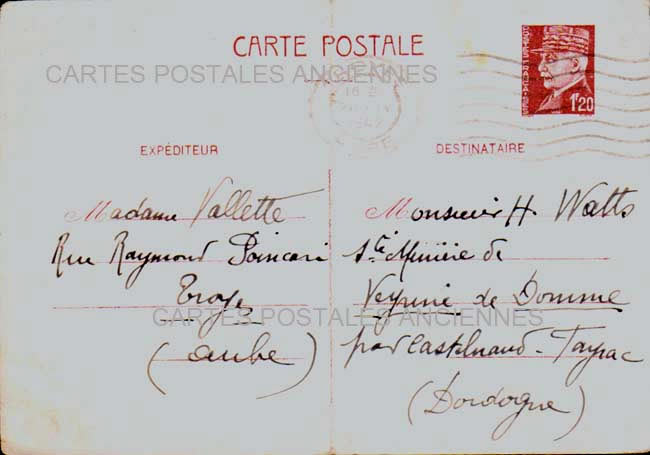 CARTE POSTALE
CARTES POSTALES ANCIENNES
1F20
EXPÉDITEUR
Madame Vallette
Rue Raymond Poincaré
Troyes
(Aube)
DESTINATAIRE
Monsieur H. Watts
Sté Minière de
de Domme
par Castelnaud-Fayrac
(Dordogne)
CARTES POSTALES ANCIENNES